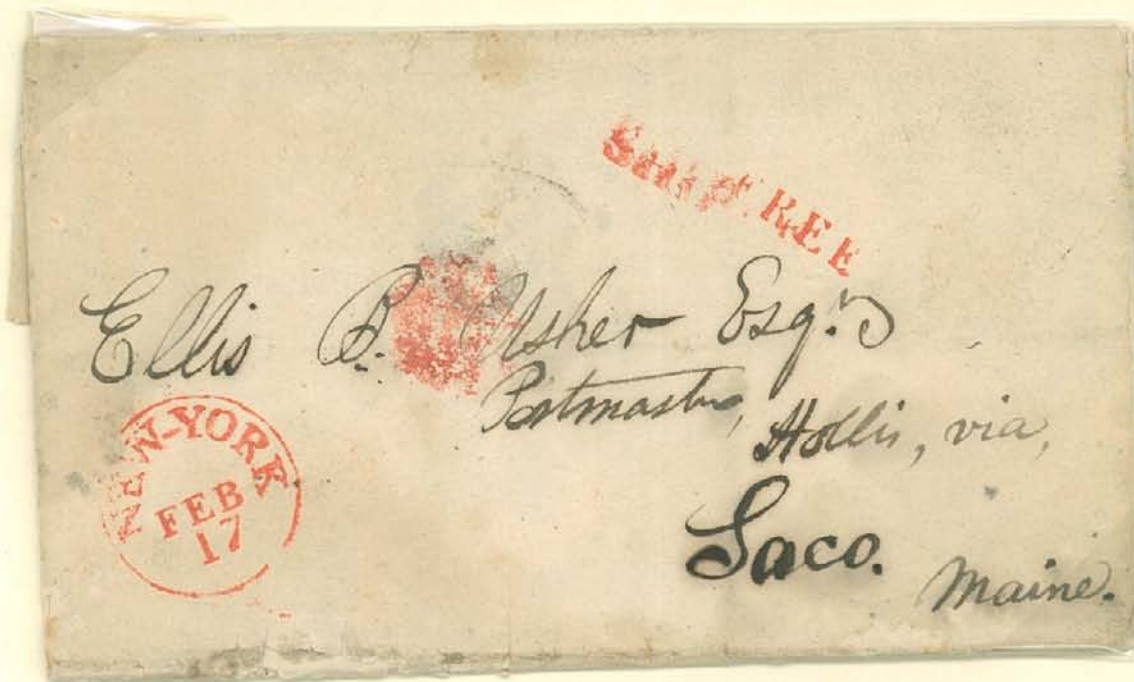 SHIP FREE
Ellis B. Usher Esqr.
Postmaster,
Hollis, via,
Saco.
Maine.
NEW-YORK
FEB
17